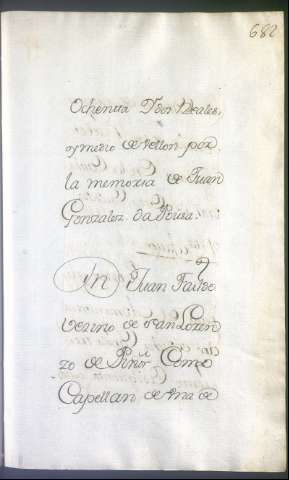 682
Ochentta Ydos Reales,
y medio de vellon por
la memoria de Juan
Gonzalez da Pousa.
Dn Juan
vecino de San Loren
zo de Piñor Como
Capellan de Una de